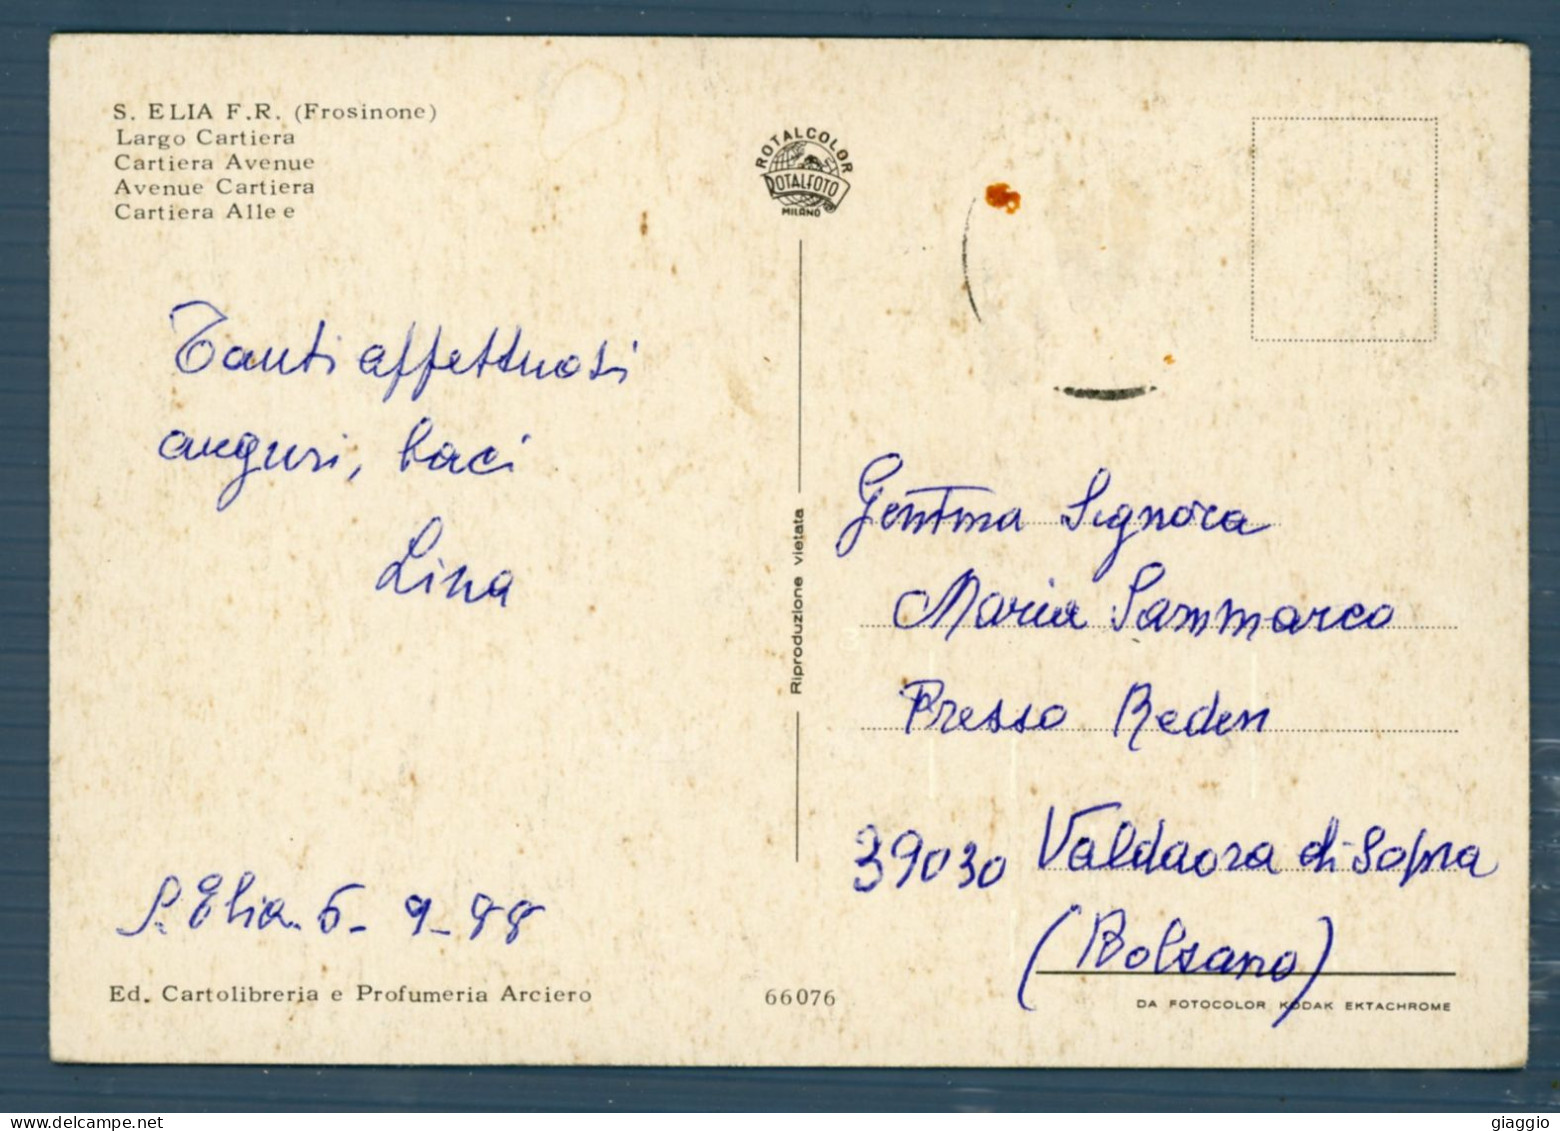 S. ELIA F.R. (Frosinone)
Largo Cartiera
Cartiera Avenue
Avenue Cartiera
Cartiera Allee
ROTALCOLOR
ROTALFOTO
MILANO
Tanti affettuosi
auguri, baci
Lina
S. Elia. 5-9-88
Ed. Cartolibreria e Profumeria Arciero
66076
Riproduzione vietata
Gent.ma Signora
Maria Sammarco
Presso Reden
39030 Valdaora di Sopra
(Bolzano)
DA FOTOCOLOR KODAK EKTACHROME
giaggio